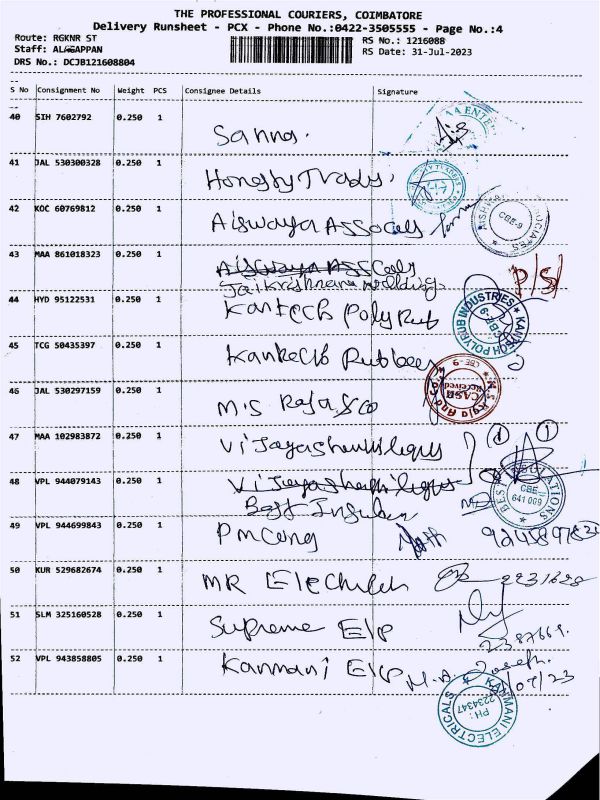 THE PROFESSIONAL COURIERS, COIMBATORE
Delivery Runsheet - PCX - Phone No.:0422-3505555 - Page No.:4
Route: RGKNR ST
RS No.: 1216088
Staff: ALAGAPPAN
RS Date: 31-Jul-2023
DRS No.: DCJB121608804
S No Consignment No Weight PCS Consignee Details Signature
40 SIH 7602792 0.250 1
Sanna.
41 JAL 530300328 0.250 1
Trades
42 KOC 60769812 0.250 1
Aiswaya Assocets
CBE-9
43 MAA 861018323 0.250 1
Jaikrishnana moldings
P/S
44 HYD 95122531 0.250 1
Kantech PolyRub
KANTECH POLYRUB INDUSTRIES
45 TCG 50435397 0.250 1
Kantech Rubbees
CBE-9
46 JAL 530297159 0.250 1
M.S Raja & Co
CASH
Received
47 MAA 102983872 0.250 1
1
48 VPL 944079143 0.250 1
Best Insulan
CBE
641 009
49 VPL 944699843 0.250 1
Pmceng
50 KUR 529682674 0.250 1
MR
2231628
51 SLM 325160528 0.250 1
Supreme E/p
2387669.
52 VPL 943858805 0.250 1
Kanmani E/p
M.A. Joseph.
/07/23
KANMANI ELECTRICALS
PH:
2234347